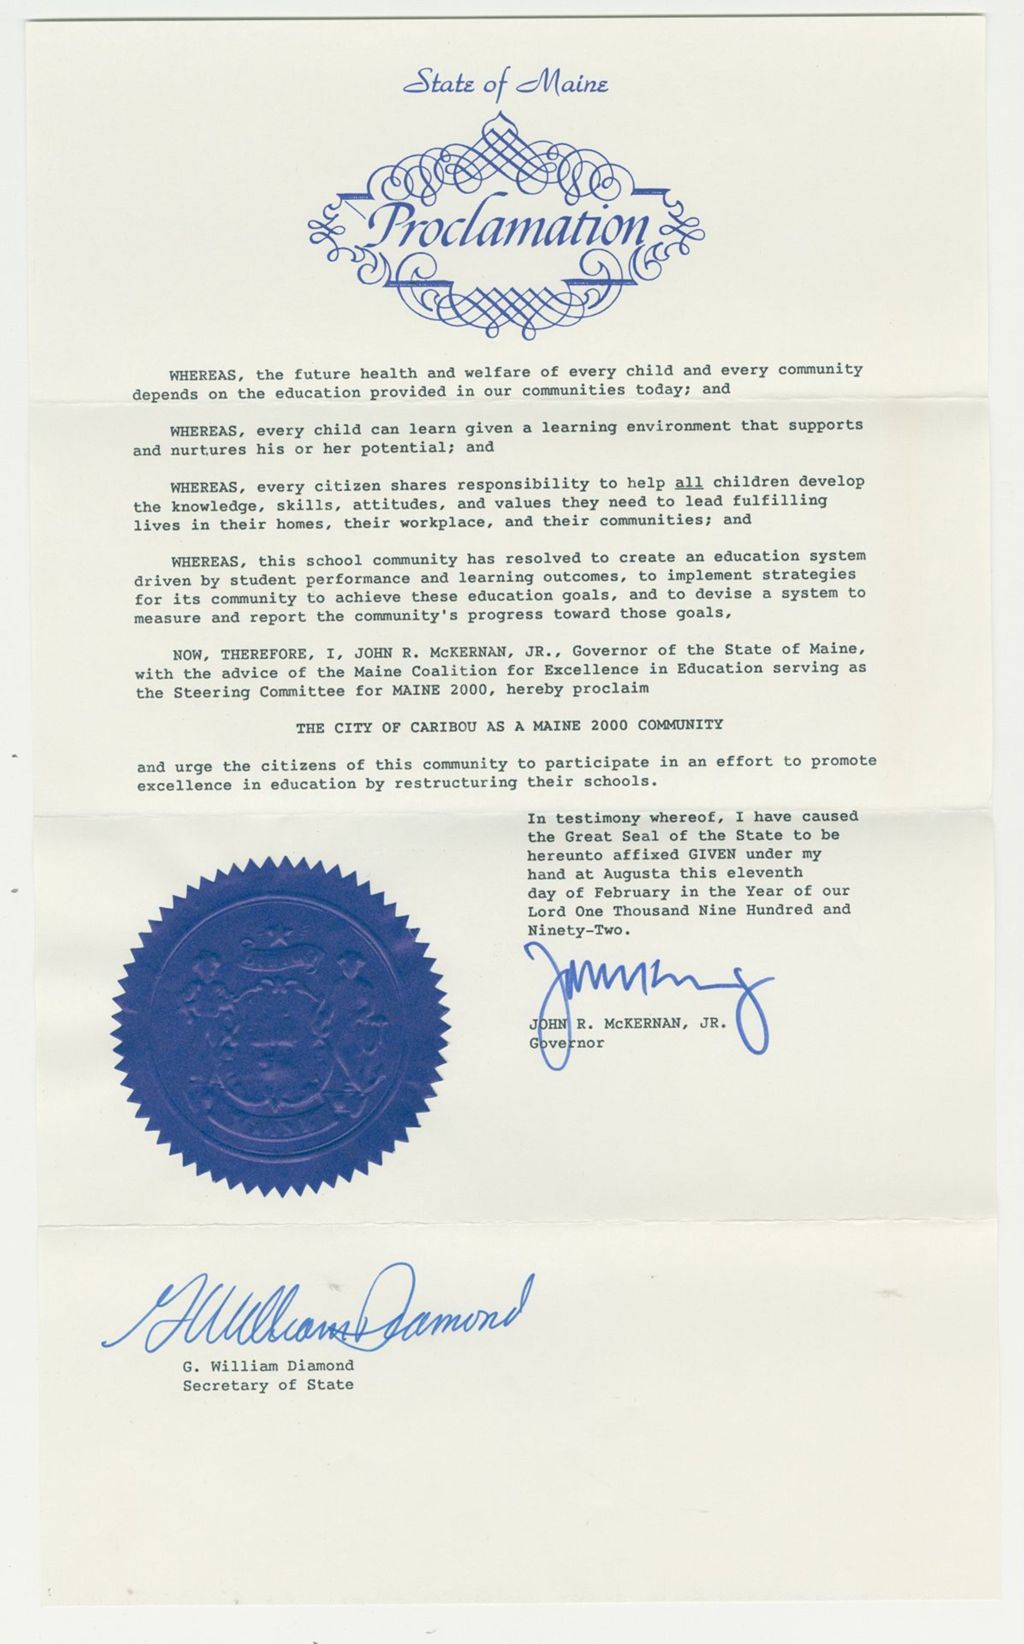 State of Maine
Proclamation
WHEREAS, the future health and welfare of every child and every community
depends on the education provided in our communities today; and
WHEREAS, every child can learn given a learning environment that supports
and nurtures his or her potential; and
WHEREAS, every citizen shares responsibility to help all children develop
the knowledge, skills, attitudes, and values they need to lead fulfilling
lives in their homes, their workplace, and their communities; and
WHEREAS, this school community has resolved to create an education system
driven by student performance and learning outcomes, to implement strategies
for its community to achieve these education goals, and to devise a system to
measure and report the community's progress toward those goals,
NOW, THEREFORE, I, JOHN R. McKERNAN, JR., Governor of the State of Maine,
with the advice of the Maine Coalition for Excellence in Education serving as
the Steering Committee for MAINE 2000, hereby proclaim
THE CITY OF CARIBOU AS A MAINE 2000 COMMUNITY
and urge the citizens of this community to participate in an effort to promote
excellence in education by restructuring their schools.
In testimony whereof, I have caused
the Great Seal of the State to be
hereunto affixed GIVEN under my
hand at Augusta this eleventh
day of February in the Year of our
Lord One Thousand Nine Hundred and
Ninety-Two.
JOHN R. McKERNAN, JR.
Governor
G William Diamond
G. William Diamond
Secretary of State